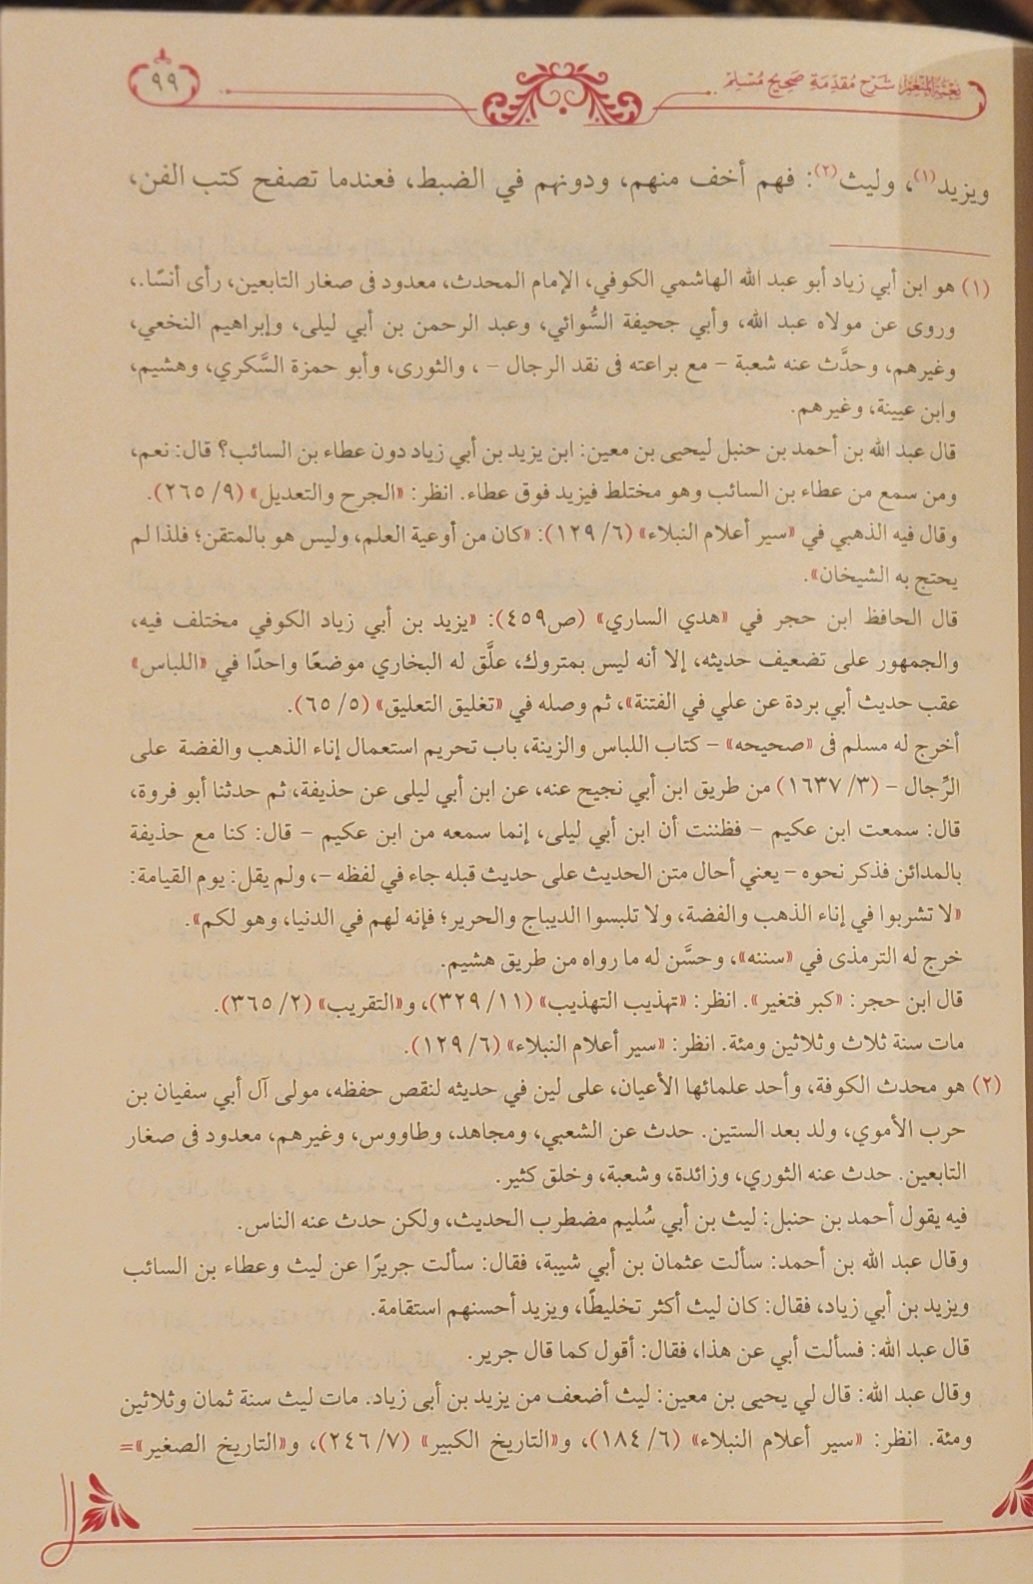 شَرْح مُقَدِّمَةِ صَحِيحِ مُسْلِمْ
٩٩
ويزيد(١)، وليث(٢): فهم أخف منهم، ودونهم في الضبط، فعندما تصفح كتب الفن،
(١) هو ابن أبي زياد أبو عبد الله الهاشمي الكوفي، الإمام المحدث، معدود فى صغار التابعين، رأى أنسًا.،
وروى عن مولاه عبد الله، وأبي جحيفة السُّوائي، وعبد الرحمن بن أبي ليلى، وإبراهيم النخعي،
وغيرهم، وحدَّث عنه شعبة - مع براعته فى نقد الرجال - ، والثورى، وأبو حمزة السَّكري، وهشيم،
وابن عيينة، وغيرهم.
قال عبد الله بن أحمد بن حنبل ليحيى بن معين: ابن يزيد بن أبي زياد دون عطاء بن السائب؟ قال: نعم،
ومن سمع من عطاء بن السائب وهو مختلط فيزيد فوق عطاء. انظر: «الجرح والتعديل» (٩/ ٢٦٥).
وقال فيه الذهبي في «سير أعلام النبلاء» (٦/ ١٢٩): «كان من أوعية العلم، وليس هو بالمتقن؛ فلذا لم
يحتج به الشيخان».
قال الحافظ ابن حجر في «هدي الساري» (ص٤٥٩): «يزيد بن أبي زياد الكوفي مختلف فيه،
والجمهور على تضعيف حديثه، إلا أنه ليس بمتروك، علَّق له البخاري موضعًا واحدًا في «اللباس»
عقب حديث أبي بردة عن علي في الفتنة»، ثم وصله في «تغليق التعليق» (٥/ ٦٥).
أخرج له مسلم فى «صحيحه» - كتاب اللباس والزينة، باب تحريم استعمال إناء الذهب والفضة على
الرِّجال - (٣/ ١٦٣٧) من طريق ابن أبي نجيح عنه، عن ابن أبي ليلى عن حذيفة، ثم حدثنا أبو فروة،
قال: سمعت ابن عكيم - فظننت أن ابن أبي ليلى، إنما سمعه من ابن عكيم - قال: كنا مع حذيفة
بالمدائن فذكر نحوه - يعني أحال متن الحديث على حديث قبله جاء في لفظه -، ولم يقل: يوم القيامة:
«لا تشربوا في إناء الذهب والفضة، ولا تلبسوا الديباج والحرير؛ فإنه لهم في الدنيا، وهو لكم».
خرج له الترمذى في «سننه»، وحسَّن له ما رواه من طريق هشيم.
قال ابن حجر: «كبر فتغير». انظر: «تهذيب التهذيب» (١١/ ٣٢٩)، و«التقريب» (٢/ ٣٦٥).
مات سنة ثلاث وثلاثين ومئة. انظر: «سير أعلام النبلاء» (٦/ ١٢٩).
(٢) هو محدث الكوفة، وأحد علمائها الأعيان، على لين في حديثه لنقص حفظه، مولى آل أبي سفيان بن
حرب الأموي، ولد بعد الستين. حدث عن الشعبي، ومجاهد، وطاووس، وغيرهم، معدود فى صغار
التابعين. حدث عنه الثوري، وزائدة، وشعبة، وخلق كثير.
فيه يقول أحمد بن حنبل: ليث بن أبي سُليم مضطرب الحديث، ولكن حدث عنه الناس.
وقال عبد الله بن أحمد: سألت عثمان بن أبي شيبة، فقال: سألت جريرًا عن ليث وعطاء بن السائب
ويزيد بن أبي زياد، فقال: كان ليث أكثر تخليطًا، ويزيد أحسنهم استقامة.
قال عبد الله: فسألت أبي عن هذا، فقال: أقول كما قال جرير.
وقال عبد الله: قال لي يحيى بن معين: ليث أضعف من يزيد بن أبى زياد. مات ليث سنة ثمان وثلاثين
ومئة. انظر: «سير أعلام النبلاء» (٦/ ١٨٤)، و«التاريخ الكبير» (٧/ ٢٤٦)، و«التاريخ الصغير»=